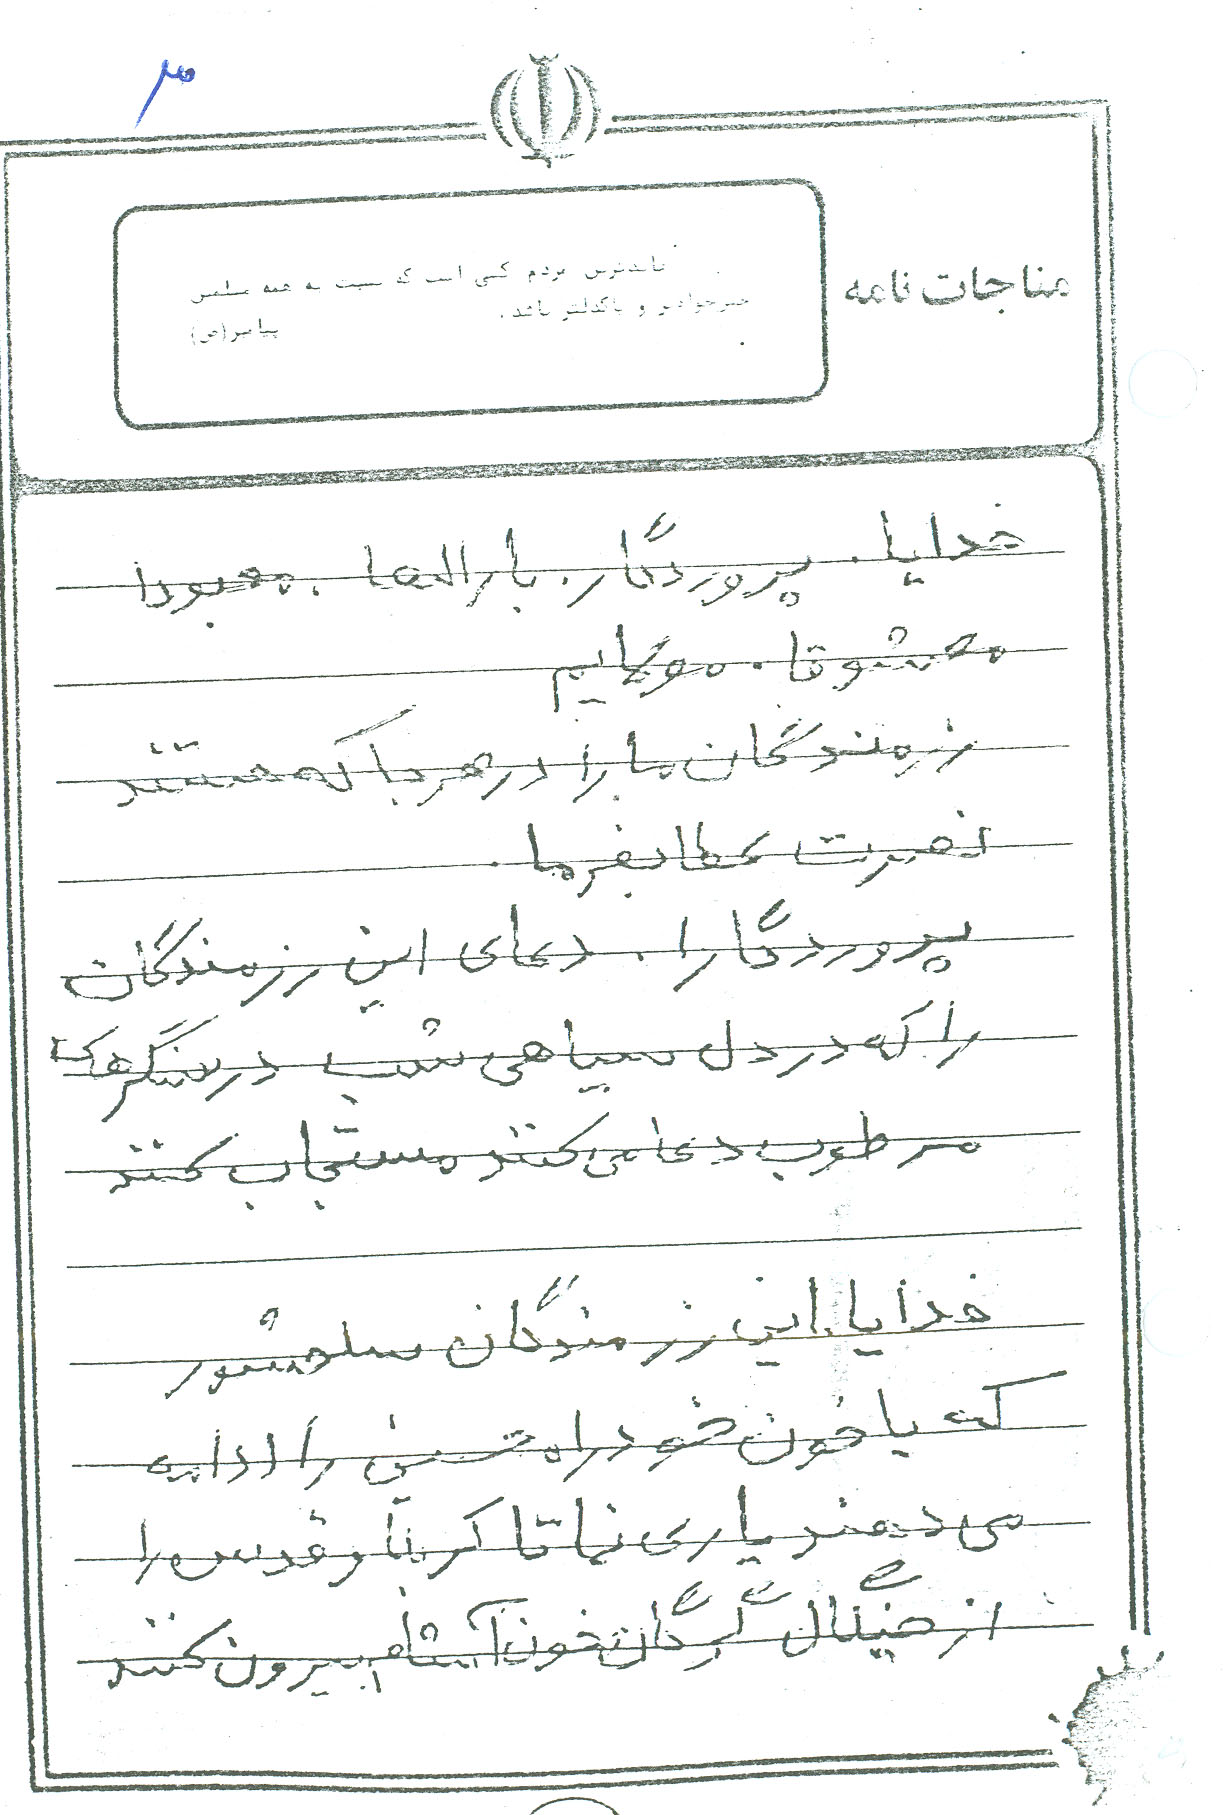 ۳
مناجات نامه
عابدترین مردم کسی است که نسبت به همه مسلمین
خیرخواه‌تر و پاکدلتر باشد.
پیامبر(ص)
خدایا. پروردگار. بارالها. معبودا
معشوقا. مولایم
رزمندگان ما را در هر جا که هستند
نصرت عطا بفرما.
پروردگارا. دعای این رزمندگان
را که در دل سیاهی شب در سنگرهای
مرطوب دعا می کنند مستجاب کنند
خدایا این رزمندگان سلحشور
که با خون خود راه حسینی را ادامه
می دهند یاری نما تا کربلا و قدس را
از چنگال گرگان خون آشام بیرون کنند